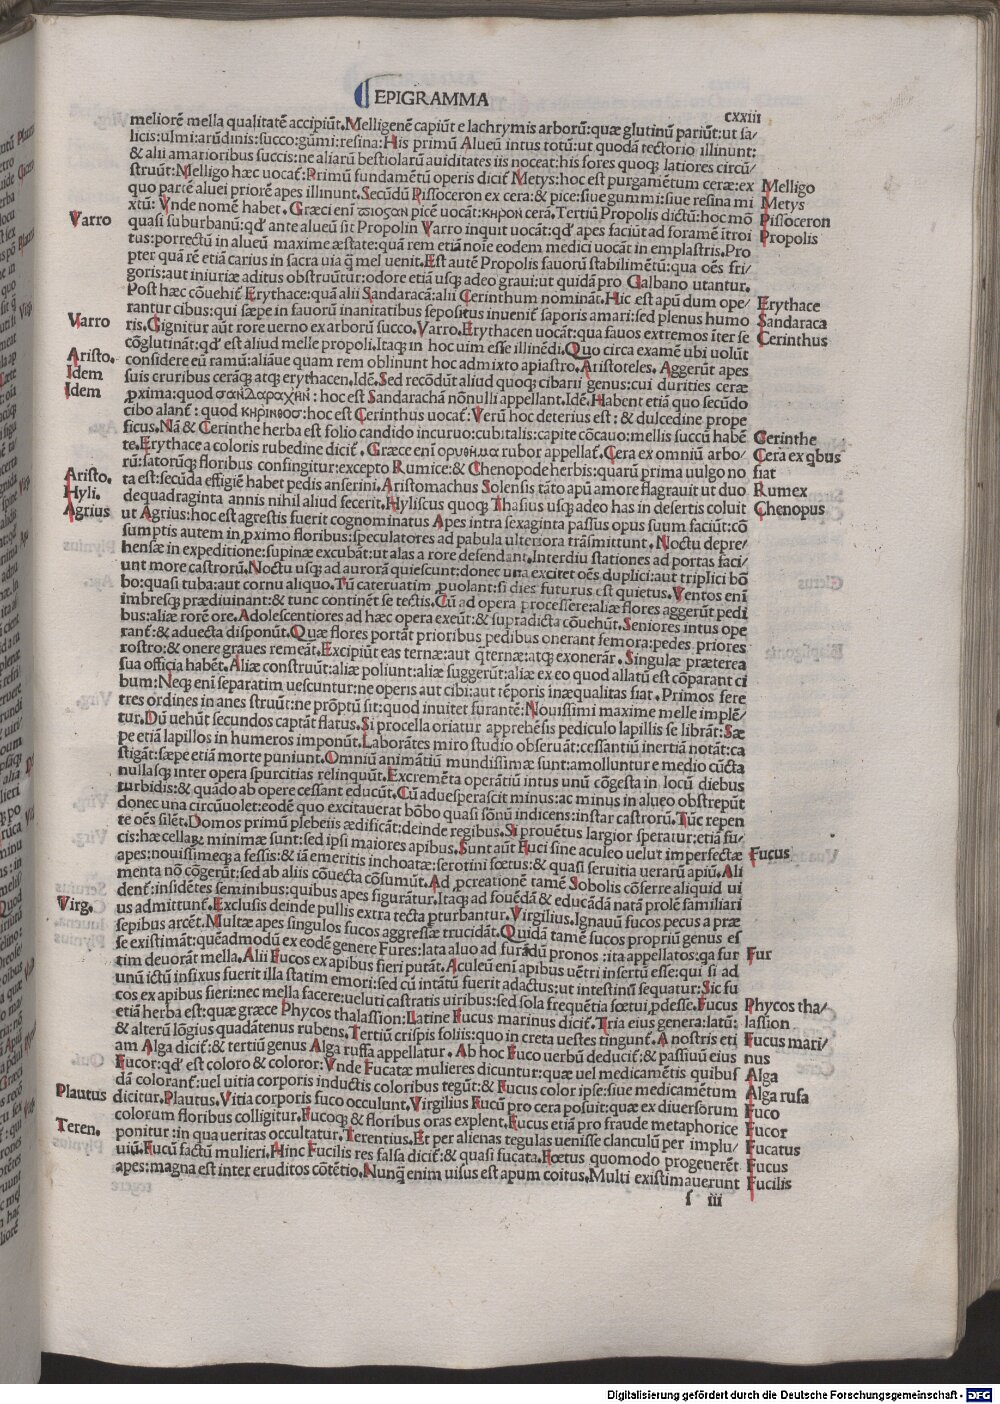 EPIGRAMMA
cxxiii
meliorē mella qualitatē accipiūt. Melligenē capiūt e lachrymis arborū: quæ glutinū pariūt: ut sa/
licis: ulmi: arūdinis: succo: gūmi: resina: His primū Alueū intus totū: ut quodā tectorio illinunt:
& alii amarioribus succis: ne aliarū bestiolarū auiditates iis noceat: his fores quoq; latiores circū/
struūt: Melligo hæc uocat̄: Primū fundamētū operis dicit̄ Metys: hoc est purgamētum ceræ: ex
quo partē aluei priorē apes illinunt. Secūdū Pissoceron ex cera: & pice: siue gummi: siue resina mi
xtū: Vnde nomē habet. Græci enī πισσαν picē uocāt: κηρον cerā. Tertiū Propolis dictū: hoc mō
quasi suburbanū: qd' ante alueū sit Propolin Varro inquit uocāt: qd' apes faciūt ad foramē itroi
tus: porrectū in alueū maxime æstate: quā rem etiā noīe eodem medici uocāt in emplastris. Pro
pter quā rē etiā carius in sacra uia q̄ mel uenit. Est autē Propolis fauorū stabilimētū: qua oēs fri/
goris: aut iniuriæ aditus obstruūtur: odore etiā usq; adeo graui: ut quidā pro Galbano utantur.
Post hæc cōuehit̄ Erythace: quā alii Sandaracā: alii Cerinthum nomināt. Hic est apū dum ope/
rantur cibus: qui sæpe in fauorū inanitatibus sepositus inuenit̄ saporis amari: sed plenus humo
ris. Gignitur aūt rore uerno ex arborū succo. Varro. Erythacen uocāt: qua fauos extremos iter se
cōglutināt: qd' est aliud melle propoli. Itaq; in hoc uim esse illinēdi. Quo circa examē ubi uolūt
considere eū ramū: aliāue quam rem oblinunt hoc admixto apiastro. Aristoteles. Aggerūt apes
suis cruribus cerāq; atq; erythacen. Idē. Sed recōdūt aliud quoq; cibarii genus: cui durities ceræ
ꝓxima: quod σανδαραχην: hoc est Sandarachā nōnulli appellant. Idē. Habent etiā quo secūdo
cibo alant̄: quod κηρινθοσ: hoc est Cerinthus uocat̄: Verū hoc deterius est: & dulcedine prope
ficus. Nā & Cerinthe herba est folio candido incuruo: cubitalis: capite cōcauo: mellis succū habē
te. Erythace a coloris rubedine dicit̄. Græce enī ορυθημα rubor appellat̄. Cera ex omniū arbo/
rū: satorūq; floribus confingitur: excepto Rumice: & Chenopode herbis: quarū prima uulgo no
ta est: secūda effigiē habet pedis anserini. Aristomachus Solensis tāto apū amore flagrauit ut duo
dequadraginta annis nihil aliud fecerit. Hyliscus quoq; Thasius usq; adeo has in desertis coluit
ut Agrius: hoc est agrestis fuerit cognominatus Apes intra sexaginta passus opus suum faciūt: cō
sumptis autem in ꝓximo floribus: speculatores ad pabula ulteriora trāsmittunt. Noctu depre/
hensæ in expeditione: supinæ excubāt: ut alas a rore defendant. Interdiu stationes ad portas faci/
unt more castrorū. Noctu usq; ad aurorā quiescunt: donec una excitet oēs duplici: aut triplici bō
bo: quasi tuba: aut cornu aliquo. Tū cateruatim ꝓuolant: si dies futurus est quietus. Ventos enī
imbresq; prædiuinant: & tunc continēt se tectis. Cū ad opera processere: aliæ flores aggerūt pedi
bus: aliæ rorē ore. Adolescentiores ad hæc opera exeūt: & supradicta cōuehūt. Seniores intus ope
rant̄: & aduecta disponūt. Quæ flores portāt prioribus pedibus onerant femora: pedes priores
rostro: & onere graues remeāt. Excipiūt eas ternæ: aut q̄ternæ: atq; exonerār. Singulæ præterea
sua officia habēt. Aliæ construūt: aliæ poliunt: aliæ suggerūt: aliæ ex eo quod allatū est cōparant ci
bum: Neq; enī separatim uescuntur: ne operis aut cibi: aut tēporis inæqualitas fiat. Primos fere
tres ordines in anes struūt: ne prōptū sit: quod inuitet furantē: Nouissimi maxime melle implē/
tur. Dū uehūt secundos captāt flatus. Si procella oriatur apprehēsis pediculo lapillis se librāt: Sæ
pe etiā lapillos in humeros imponūt. Laborātes miro studio obseruāt: cessantiū inertiā notāt: ca
stigāt: sæpe etiā morte puniunt. Omniū animātiū mundissimæ sunt: amolluntur e medio cūcta
nullasq; inter opera spurcitias relinquūt. Excremēta operātiū intus unū cōgesta in locū diebus
turbidis: & quādo ab opere cessant educūt. Cū aduesperascit minus: ac minus in alueo obstrepūt
donec una circūuolet: eodē quo excitauerat bōbo quasi sōnū indicens: instar castrorū. Tūc repen
te oēs silēt. Domos primū plebeiis ædificāt: deinde regibus. Si prouētus largior speratur: etiā fu/
cis: hæ cellaꝝ minimæ sunt: sed ipsi maiores apibus. Sunt aūt Fuci sine aculeo uelut imperfectæ
apes: nouissimeq; a fessis: & iā emeritis inchoatæ: serotini fœtus: & quasi seruitia uerarū apiū. Ali
menta nō cōgerūt: sed ab aliis cōuecta cōsumūt. Ad ꝓcreationē tamē Sobolis cōferre aliquid ui
dent̄: insidētes seminibus: quibus apes figurātur. Itaq; ad fouēdā & educādā natā prolē familiari
us admittunt̄. Exclusis deinde pullis extra tecta ꝓturbantur. Virgilius. Ignauū fucos pecus a præ
sepibus arcēt. Multæ apes singulos fucos aggressæ trucidāt. Quidā tamē fucos propriū genus es
se existimāt: quēadmodū ex eodē genere Fures: lata aluo ad furādū pronos: ita appellatos: qa fur
tim deuorāt mella. Alii Fucos ex apibus fieri putāt. Aculeū enī apibus uētri insertū esse: qui si ad
unū ictū infixus fuerit illa statim emori: sed cū intātū fuerit adactus: ut intestinū sequatur: Sic fu
cos ex apibus fieri: nec mella facere: ueluti castratis uiribus: sed sola frequētia fœtui ꝓdesse. Fucus
etiā herba est: quæ græce Phycos thalassion: Latine Fucus marinus dicit̄. Tria eius genera: latū:
& alterū lōgius quadātenus rubens. Tertiū crispis foliis: quo in creta uestes tingunt̄. A nostris eti
am Alga dicit̄: & tertiū genus Alga ruffa appellatur. Ab hoc Fuco uerbū deducit̄: & passiuū eius
Fucor: qd' est coloro & coloror: Vnde Fucatæ mulieres dicuntur: quæ uel medicamētis quibus
dā colorant̄: uel uitia corporis inductis coloribus tegūt: & Fucus color ipse: siue medicamētum
dicitur. Plautus. Vitia corporis fuco occulunt. Virgilius Fucū pro cera posuit: quæ ex diuersorum
colorum floribus colligitur. Fucoq; & floribus oras explent. Fucus etiā pro fraude metaphorice
ponitur: in qua ueritas occultatur. Terentius. Et per alienas tegulas uenisse clanculū per implu/
uiū. Fucū factū mulieri. Hinc Fucilis res falsa dicit̄: & quasi fucata. Fœtus quomodo progenerēt
apes: magna est inter eruditos cōtētio. Nunq̄ enim uisus est apum coitus. Multi existimauerunt
f iii
Varro
Varro
Aristo.
Idem
Idem
Aristo.
Hyli.
Agrius
Virg.
Plautus
Teren.
Melligo
Metys
Pissoceron
Propolis
Erythace
Sandaraca
Cerinthus
Cerinthe
Cera ex qbus
fiat
Rumex
Chenopus
Fucus
Fur
Phycos tha/
lassion
Fucus mari/
nus
Alga
Alga rufa
Fuco
Fucor
Fucatus
Fucus
Fucilis
Digitalisierung gefördert durch die Deutsche Forschungsgemeinschaft - DFG